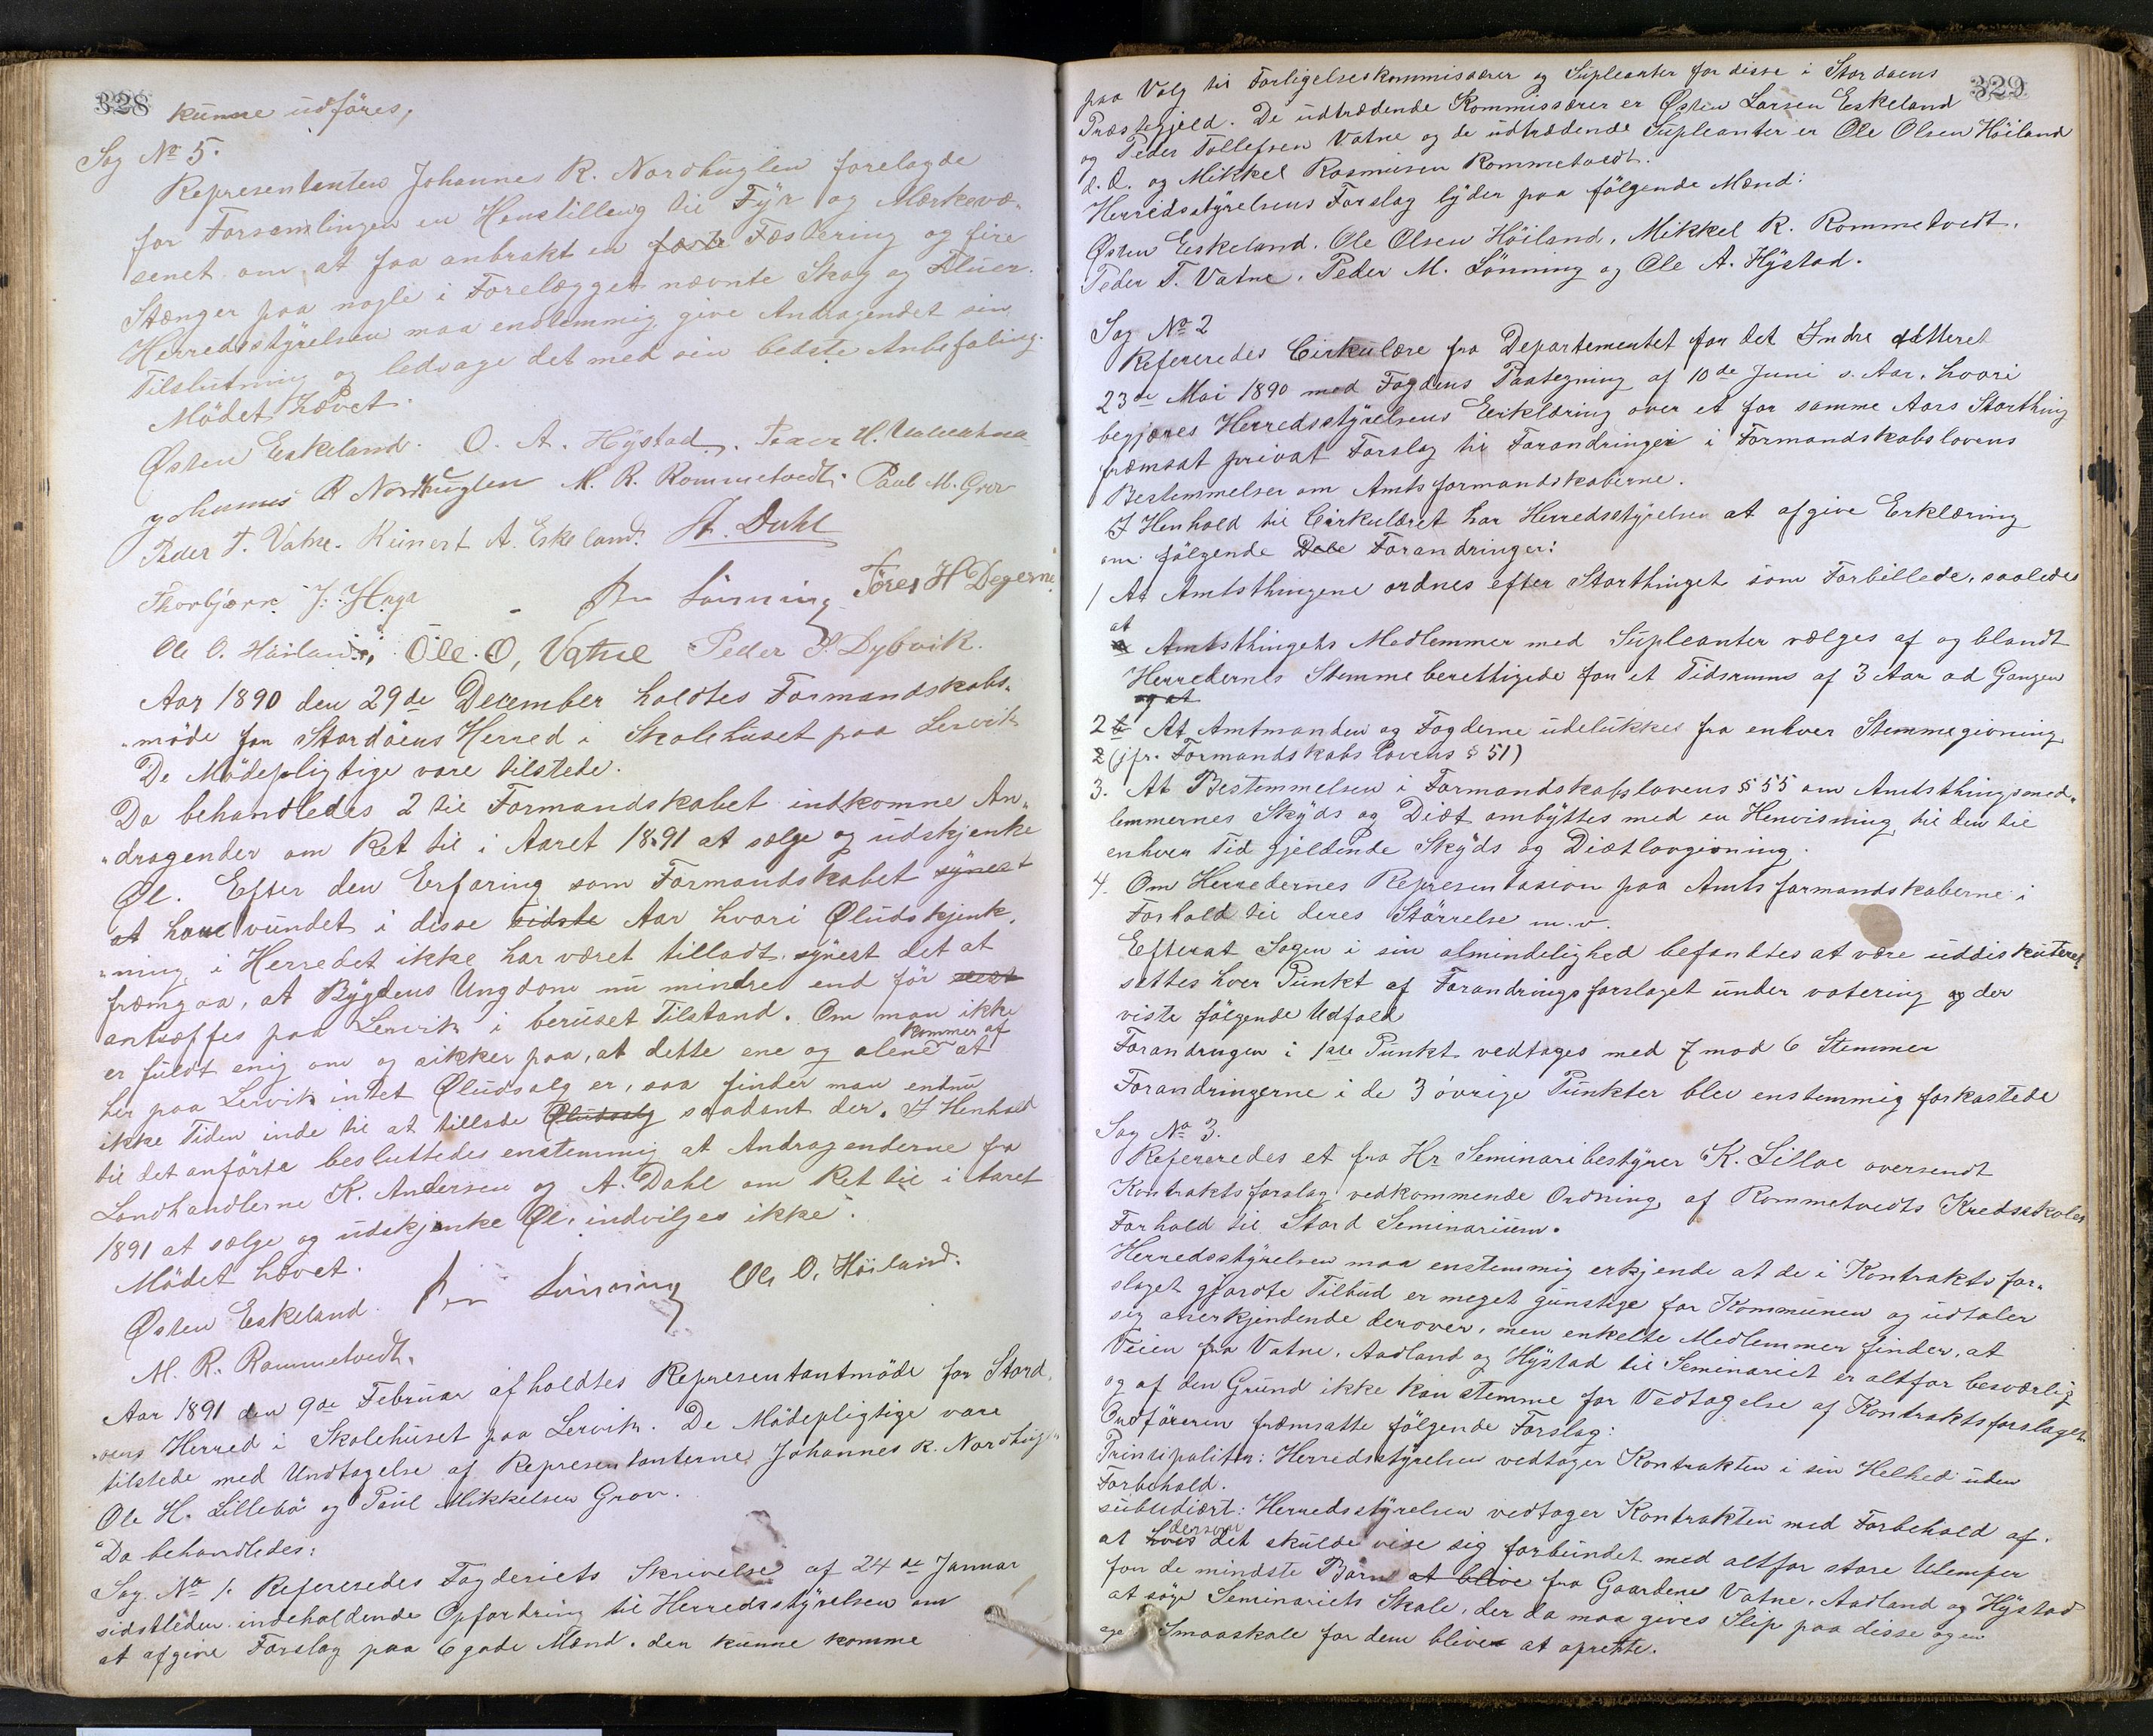 328
kunne udføres,
Sag No 5.
Representanten Johannes R. Nordhuglen forelagde
for Forsamlingen en Henstilleng til Fyr og Mærkevæ-
senet om at faa anbrakt en faste Fæstering og fire
Stænger paa nogle i Forelægget nævnte Skag og Fluer.
Herredsstyrelsen maa enstemmig give Andragendet sin
Tilslutning og ledsage det med sin bedste Anbefaling.
Mödet hævet.
Østen Eskeland. O. A. Hystad. Peder H.
Johannes R Nordhuglen M. R. Rommetvedt. Paul M. Grov
Peder T. Vatne. Reinert A. Eskeland. A. Dahl
Thorbjørn J. Haga Lönning Töres H Degerne.
Ole O. Høiland, Ole. O, Vatne Peder P. Dybvik.
Aar 1890 den 29de December holdtes Formandskabs-
"möde for Stordöens Herred i Skolehuset paa Lervik
De Mödepligtige vare tilstede.
Da behandledes 2 til Formandskabet indkomne An-
"dragender om Ret til i Aaret 1891 at sælge og udskjenke
Øl. Efter den Erfaring som Formandskabet synest
at have vundet i disse sidste Aar hvori Øludskjenk-
"ning i Herredet ikke har været tilladt, synest det at
fræmgaa, at Bygdens Ungdom nu mindre end för sees
antræffes paa Lervik i beruset Tilstand. Om man ikke
er fuldt enig om og sikker paa, at dette ene og alene kommer af at
her paa Lervik intet Øludsalg er, saa finder man endnu
ikke Tiden inde til at tillade Øludsalg saadant der. I Henhold
til det anförte besluttedes enstemmig at Andragenderne fra
Landhandlerne K. Andersen og A. Dahl om Ret til i Aaret
1891 at sælge og udskjenke Øl, indvilges ikke.
Mödet hævet.
Østen Eskeland. Lönning Ole O. Høiland.
M. R. Rommetvedt.
Aar 1891 den 9de Februar afholdtes Representantmöde for Stord-
"øens Herred i Skolehuset paa Lervik. De Mödepligtige vare
tilstede med Undtagelse af Representanterne Johannes R. Nordhugl"
Ole H. Lillebö og Paul Mikkelsen Grov.
Da behandledes:
Sag No 1. Refereredes Fogderiets Skrivelse af 24de Januar
sidstleden indeholdende Opfordring til Herredsstyrelsen om
at afgive Forslag paa 6 gode Mænd, der kunne komme
329
paa Valg til Forligelseskommisærer og Supleanter for disse i Stordøens
Præstegjeld. De udtrædende Kommissærer er Østen Larsen Eskeland
og Peder Tollefsen Vatne og de udtrædende Supleanter er Ole Olsen Höiland
d. Æ. og Mikkel Rasmusen Rommetvedt.
Herredsstyrelsens Forslag lyder paa fölgende Mænd:
Østen Eskeland, Ole Olsen Höiland, Mikkel R. Rommetvedt,
Peder T. Vatne, Peder M. Lönning og Ole A. Hystad.
Sag No 2
Refereredes Cirkulære fra Departementet for det Indre datteret
23de Mai 1890 med Fogdens Paategning af 10de Juni s. Aar, hvori
begjæres Herredsstyrelsens Erklæring over et for samme Aars Storthing
fræmsat privat Forslag til Forandringer i Formandskabslovens
Bestemmelser om Amtsformandskaberne.
I Henhold til Cirkulæret har Herredsstyrelsen at afgive Erklæring
om fölgende Dele Forandringer:
1 At Amtsthingene ordnes efter Storthinget som Forbillede, saaledes
at
a Amtsthingets Medlemmer med Supleanter vælges af og blandt
Herredernes Stemmeberettigede for et Tidsrums af 3 Aar ad Gangen
og at
2 b At Amtmanden og Fogderne udelukkes fra enhver Stemmegivning
2 (jfr. Formandskabslovens § 51)
3. At Bestemmelsen i Formandskabslovens § 55 om Amtsthingsmed-
lemmernes Skyds og Diæt ombyttes med en Henvisning til den til
enhver Tid gjeldende Skyds og Diætlovgivning.
4. Om Herredernes Representasion paa Amtsformandskaberne i
Forhold til deres Störrelse m. v.
Efterat Sagen i sin almindelighed befandtes at være uddiskuteret
settes hver Punkt af Forandringsforslaget under votering og der
viste fölgende Udfald
Forandringen i 1ste Punkt vedtages med 7 mod 6 Stemmer
Forandringerne i de 3 övrige Punkter blev enstemmig forkastede
Sag No 3.
Refereredes et fra Hr Seminaribestyrer K. Lilloe oversendt
Kontraktsforslag vedkommende Ordning af Rommetvedts Kredsskoles
Forhold til Stord Seminarium.
Herredsstyrelsen maa enstemmig erkjende at de i Kontraktsfor-
slaget gjordte Tilbud er meget gunstige for Kommunen og udtaler
sig anerkjendende derover, men enkelte Medlemmer finder, at
Veien fra Vatne, Aadland og Hystad til Seminariet er altfor besværlig
og af den Grund ikke kan stemme for Vedtagelse af Kontraktsforslaget.
Ordföreren fræmsatte fölgende Forslag:
Prinsipaliter: Herredsstyrelsen vedtager Kontrakten i sin Helhed uden
Forbehold.
subsudiært: Herredsstyrelsen vedtager Kontrakten med Forbehold af,
at hvis dersom det skulde vise sig forbundet med altfor store Ulemper
for de mindste Børn at blive fra Gaardene Vatne, Aadland og Hystad
at söge Seminariets Skole, der da maa gives Slip paa disse og en
Smaaskole for dem bliver at oprette.